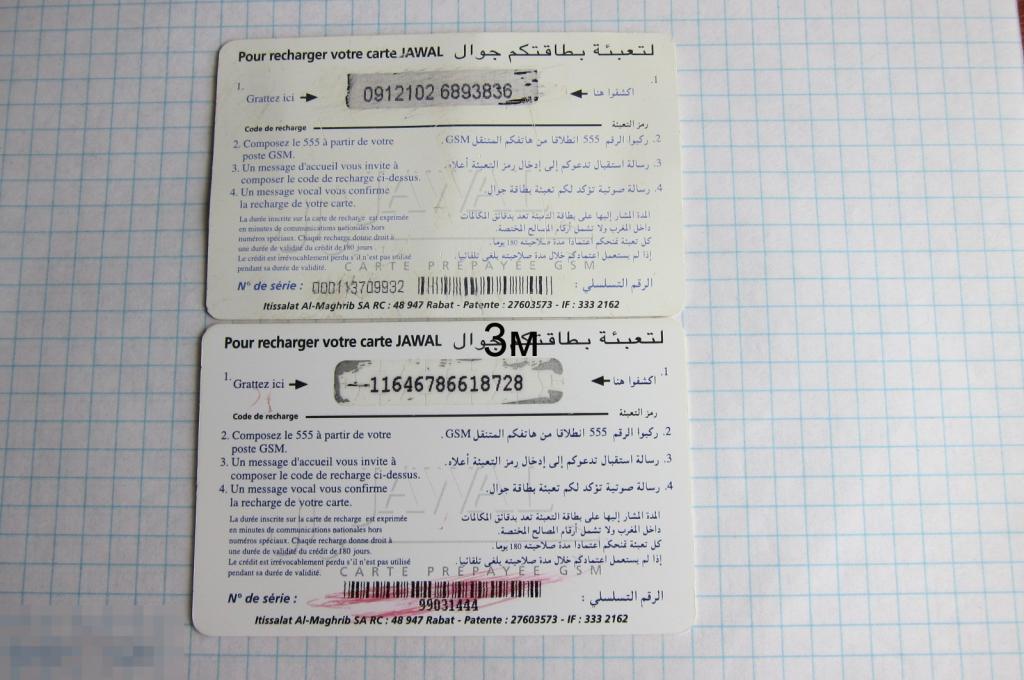 Pour recharger votre carte JAWAL لتعبئة بطاقتكم جوال
1. Grattez ici 0912102 6893836 اكشفوا هنا .1
Code de recharge رمز التعبئة
2. Composez le 555 à partir de votre poste GSM.
3. Un message d'accueil vous invite à composer le code de recharge ci-dessus.
4. Un message vocal vous confirme la recharge de votre carte.
2. ركبوا الرقم 555 انطلاقا من هاتفكم المتنقل GSM.
3. رسالة استقبال تدعوكم إلى إدخال رمز التعبئة أعلاه.
4. رسالة صوتية تؤكد لكم تعبئة بطاقة جوال.
La durée inscrite sur la carte de recharge est exprimée
en minutes de communications nationales hors
numéros spéciaux. Chaque recharge donne droit à
une durée de validité du crédit de 180 jours.
Le crédit est irrévocablement perdu s'il n'est pas utilisé
pendant sa durée de validité.
المدة المشار إليها على بطاقة التعبئة تعد بدقائق المكالمات
داخل المغرب ولا تشمل أرقام المصالح المختصة.
كل تعبئة تمنحكم اعتمادا مدة صلاحيته 180 يوما.
إذا لم يستعمل اعتمادكم خلال مدة صلاحيته يلغى تلقائيا.
JAWAL
CARTE PREPAYEE GSM
N° de série : 000113709932 الرقم التسلسلي :
Itissalat Al-Maghrib SA RC : 48 947 Rabat - Patente : 27603573 - IF : 333 2162
3M
Pour recharger votre carte JAWAL لتعبئة بطاقتكم جوال
1. Grattez ici 11646786618728 اكشفوا هنا .1
Code de recharge رمز التعبئة
2. Composez le 555 à partir de votre poste GSM.
3. Un message d'accueil vous invite à composer le code de recharge ci-dessus.
4. Un message vocal vous confirme la recharge de votre carte.
2. ركبوا الرقم 555 انطلاقا من هاتفكم المتنقل GSM.
3. رسالة استقبال تدعوكم إلى إدخال رمز التعبئة أعلاه.
4. رسالة صوتية تؤكد لكم تعبئة بطاقة جوال.
La durée inscrite sur la carte de recharge est exprimée
en minutes de communications nationales hors
numéros spéciaux. Chaque recharge donne droit à
une durée de validité du crédit de 180 jours.
Le crédit est irrévocablement perdu s'il n'est pas utilisé
pendant sa durée de validité.
المدة المشار إليها على بطاقة التعبئة تعد بدقائق المكالمات
داخل المغرب ولا تشمل أرقام المصالح المختصة.
كل تعبئة تمنحكم اعتمادا مدة صلاحيته 180 يوما.
إذا لم يستعمل اعتمادكم خلال مدة صلاحيته يلغى تلقائيا.
JAWAL
CARTE PREPAYEE GSM
N° de série : 99031444 الرقم التسلسلي :
Itissalat Al-Maghrib SA RC : 48 947 Rabat - Patente : 27603573 - IF : 333 2162